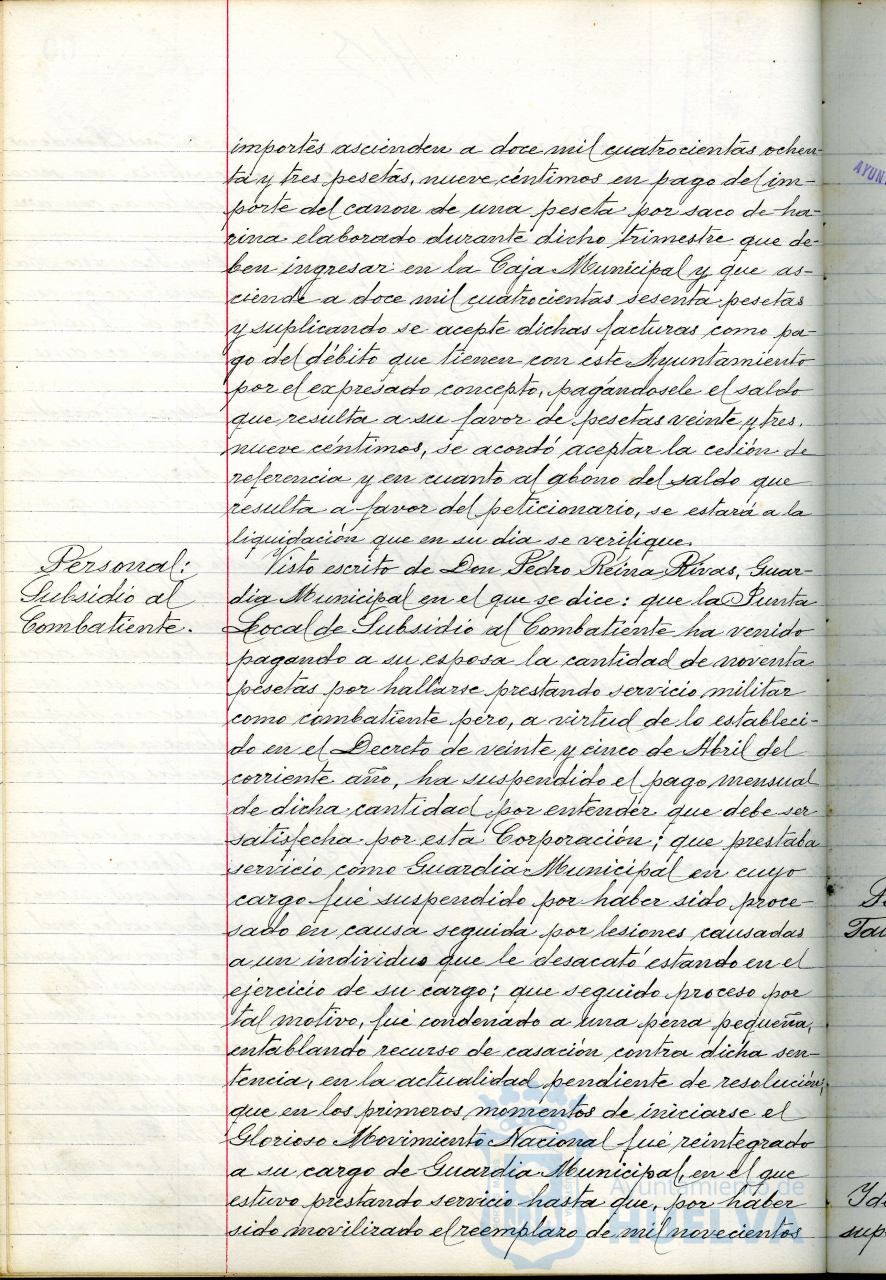 importes ascienden a doce mil cuatrocientas ochen-
ta y tres pesetas, nueve céntimos en pago del im-
porte del canon de una peseta por saco de ha-
rina elaborado durante dicho trimestre que de-
ben ingresar en la Caja Municipal y que as-
ciende a doce mil cuatrocientas sesenta pesetas
y suplicando se acepte dichas facturas como pa-
go del débito que tienen con este Ayuntamiento
por el expresado concepto, pagándosele el saldo
que resulta a su favor de pesetas veinte y tres,
nueve céntimos, se acordó aceptar la cesión de
referencia y en cuanto al abono del saldo que
resulta a favor del peticionario, se estará a la
liquidación que en su dia se verifique.
Personal:
Subsidio al
Combatiente.
Visto escrito de Don Pedro Reina Rivas, Guar-
dia Municipal en el que se dice: que la Junta
Local de Subsidio al Combatiente ha venido
pagando a su esposa la cantidad de noventa
pesetas por hallarse prestando servicio militar
como combatiente pero, a virtud de lo estableci-
do en el Decreto de veinte y cinco de Abril del
corriente año, ha suspendido el pago mensual
de dicha cantidad por entender que debe ser
satisfecha por esta Corporación; que prestaba
servicio como Guardia Municipal en cuyo
cargo fué suspendido por haber sido proce-
sado en causa seguida por lesiones causadas
a un individuo que le desacató estando en el
ejercicio de su cargo; que seguido proceso por
tal motivo, fué condenado a una pena pequeña,
entablando recurso de casación contra dicha sen-
tencia, en la actualidad pendiente de resolución;
que en los primeros momentos de iniciarse el
Glorioso Movimiento Nacional fué reintegrado
a su cargo de Guardia Municipal en el que
estuvo prestando servicio hasta que, por haber
sido movilizado el reemplazo de mil novecientos
Ayuntamiento de
HUELVA
AYUN